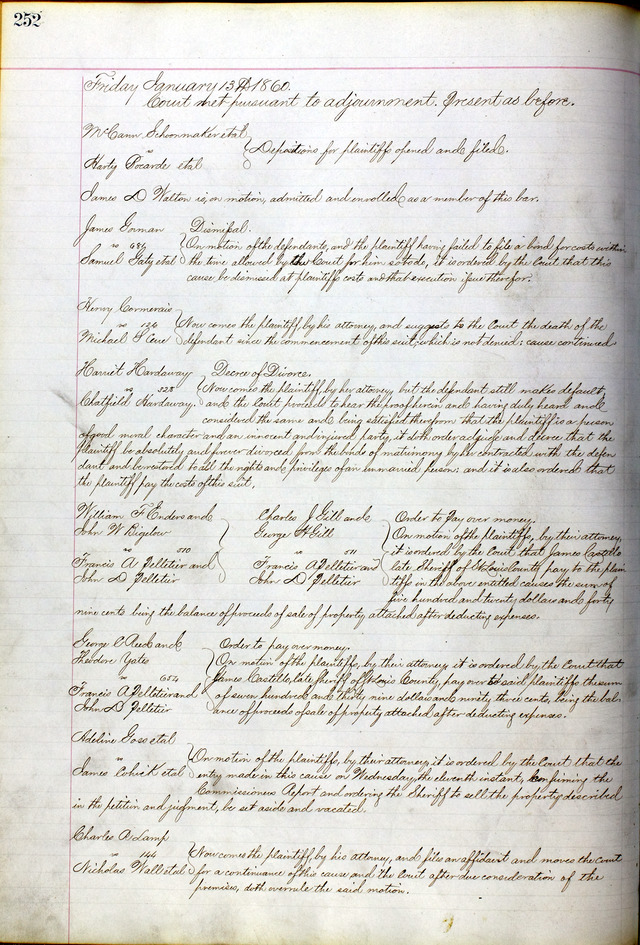 252
Friday January 13th 1860.
Court met pursuant to adjournment. Present as before.
McCann Schoonmaker etal
vs
Harty Pocarde etal
Depositions for plaintiffs opened and filed.
James D Walton is, on motion, admitted and enrolled as a member of this bar.
James Gorman Dismissal.
vs 686
Samuel Gaty etal
On motion of the defendants, and the plaintiff having failed to file a bond for costs within
the time allowed by the Court for him so to do, it is ordered by the Court that this
cause be dismissed at plaintiffs costs and that execution issue therefor.
Henry Cormercis
vs 126
Michael S Cere
Now comes the plaintiff by his attorney, and suggests to the Court the death of the
defendant since the commencement of this suit; which is not denied: cause continued
Harriet Hardaway Decree of Divorce.
vs 328
Chatfield Hardaway.
Now comes the plaintiff, by her attorney, but the defendant still makes default,
and the Court proceeds to hear the proof herein and having duly heard and
considered the same and being satisfied therefrom that the plaintiff is a person
of good moral character and an innocent and injured party, it doth order adjudge and decree that the
plaintiff be absolutely and forever divorced from the bonds of matrimony by her contracted with the defen
dant and be restored to all the rights and privileges of an unmarried person: and it is also ordered that
the plaintiff pay the costs of this suit.
William F Enders and
John W Bigelow
vs 010
Francis A Pelletier and
John D Pelletier
Charles J Gill and
George H Gill
vs 011
Francis A Pelletier and
John D Pelletier
Order to Pay over money.
On motion of the plaintiffs, by their attorney,
it is ordered by the Court that James Castello
late Sheriff of St Louis County, pay to the plain
tiffs in the above entitled causes the sum of
five hundred and twenty dollars and forty
nine cents being the balance of proceeds of sale of property attached after deducting expenses.
George C Reed and
Theodore Yates
vs 654
Francis A Pelletier and
John D Pelletier
Order to pay over money.
On motion of the plaintiffs, by their attorney it is ordered by the Court that
James Castello, late Sheriff of St Louis County, pay over to said plaintiffs the sum
of seven hundred and thirty nine dollars and ninety three cents, being the bal-
ance of proceeds of sale of property attached after deducting expenses.
Adeline Goss etal
vs
James Cohick etal
On motion of the plaintiffs, by their attorney it is ordered by the Court that the
entry made in this cause on Wednesday, the eleventh instant, confirming the
Commissioners Report and ordering the Sheriff to sell the property described
in the petition and judgment, be set aside and vacated.
Charles A Lamp
vs 144
Nicholas Wall etal
Now comes the plaintiff, by his attorney, and files an affidavit and moves the Court
for a continuance of this cause and the Court after due consideration of the
premises, doth overrule the said motion.